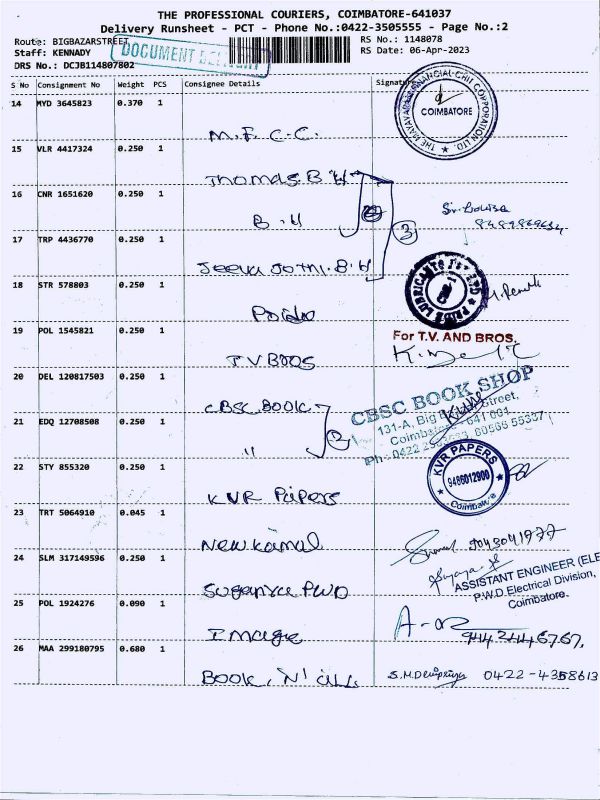 THE PROFESSIONAL COURIERS, COIMBATORE-641037
Delivery Runsheet - PCT - Phone No.:0422-3505555 - Page No.:2
Route: BIGBAZARSTREET
RS No.: 1148078
Staff: KENNADY
RS Date: 06-Apr-2023
DRS No.: DCJB114807802
DOCUMENT
S No Consignment No Weight PCS Consignee Details Signature
14 MYD 3645823 0.370 1
M.F.C.C.
COIMBATORE
15 VLR 4417324 0.250 1
Thomas. B.H
16 CNR 1651620 0.250 1
B.H
3
17 TRP 4436770 0.250 1
Jeeva Jothi. B.H
18 STR 578803 0.250 1
19 POL 1545821 0.250 1
TV BROS
For T.V. AND BROS.
20 DEL 120817503 0.250 1
CBSC BOOK
CBSC BOOK SHOP
131-A, Big Street,
Coimbatore - 641 001
21 EDQ 12708508 0.250 1
"
2
22 STY 855320 0.250 1
KVR Papers
KVR PAPERS
9486012900
Coimbatore
23 TRT 5064910 0.045 1
New Kamal
24 SLM 317149596 0.250 1
Suganya PWD
ASSISTANT ENGINEER (ELE
P.W.D Electrical Division,
Coimbatore.
25 POL 1924276 0.090 1
Image
26 MAA 299180795 0.680 1
0422-4358613